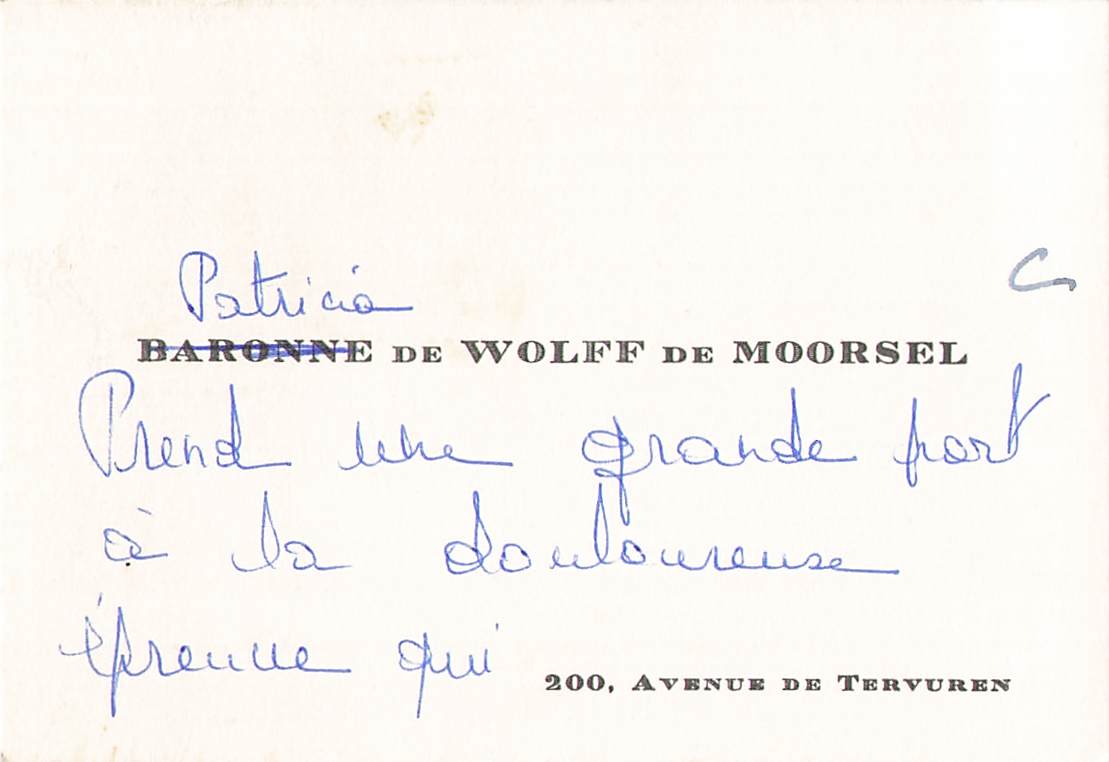 Patricia
BARONNE DE WOLFF DE MOORSEL
Prend une grande part
à la douloureuse
épreuve qui
200, AVENUE DE TERVUREN